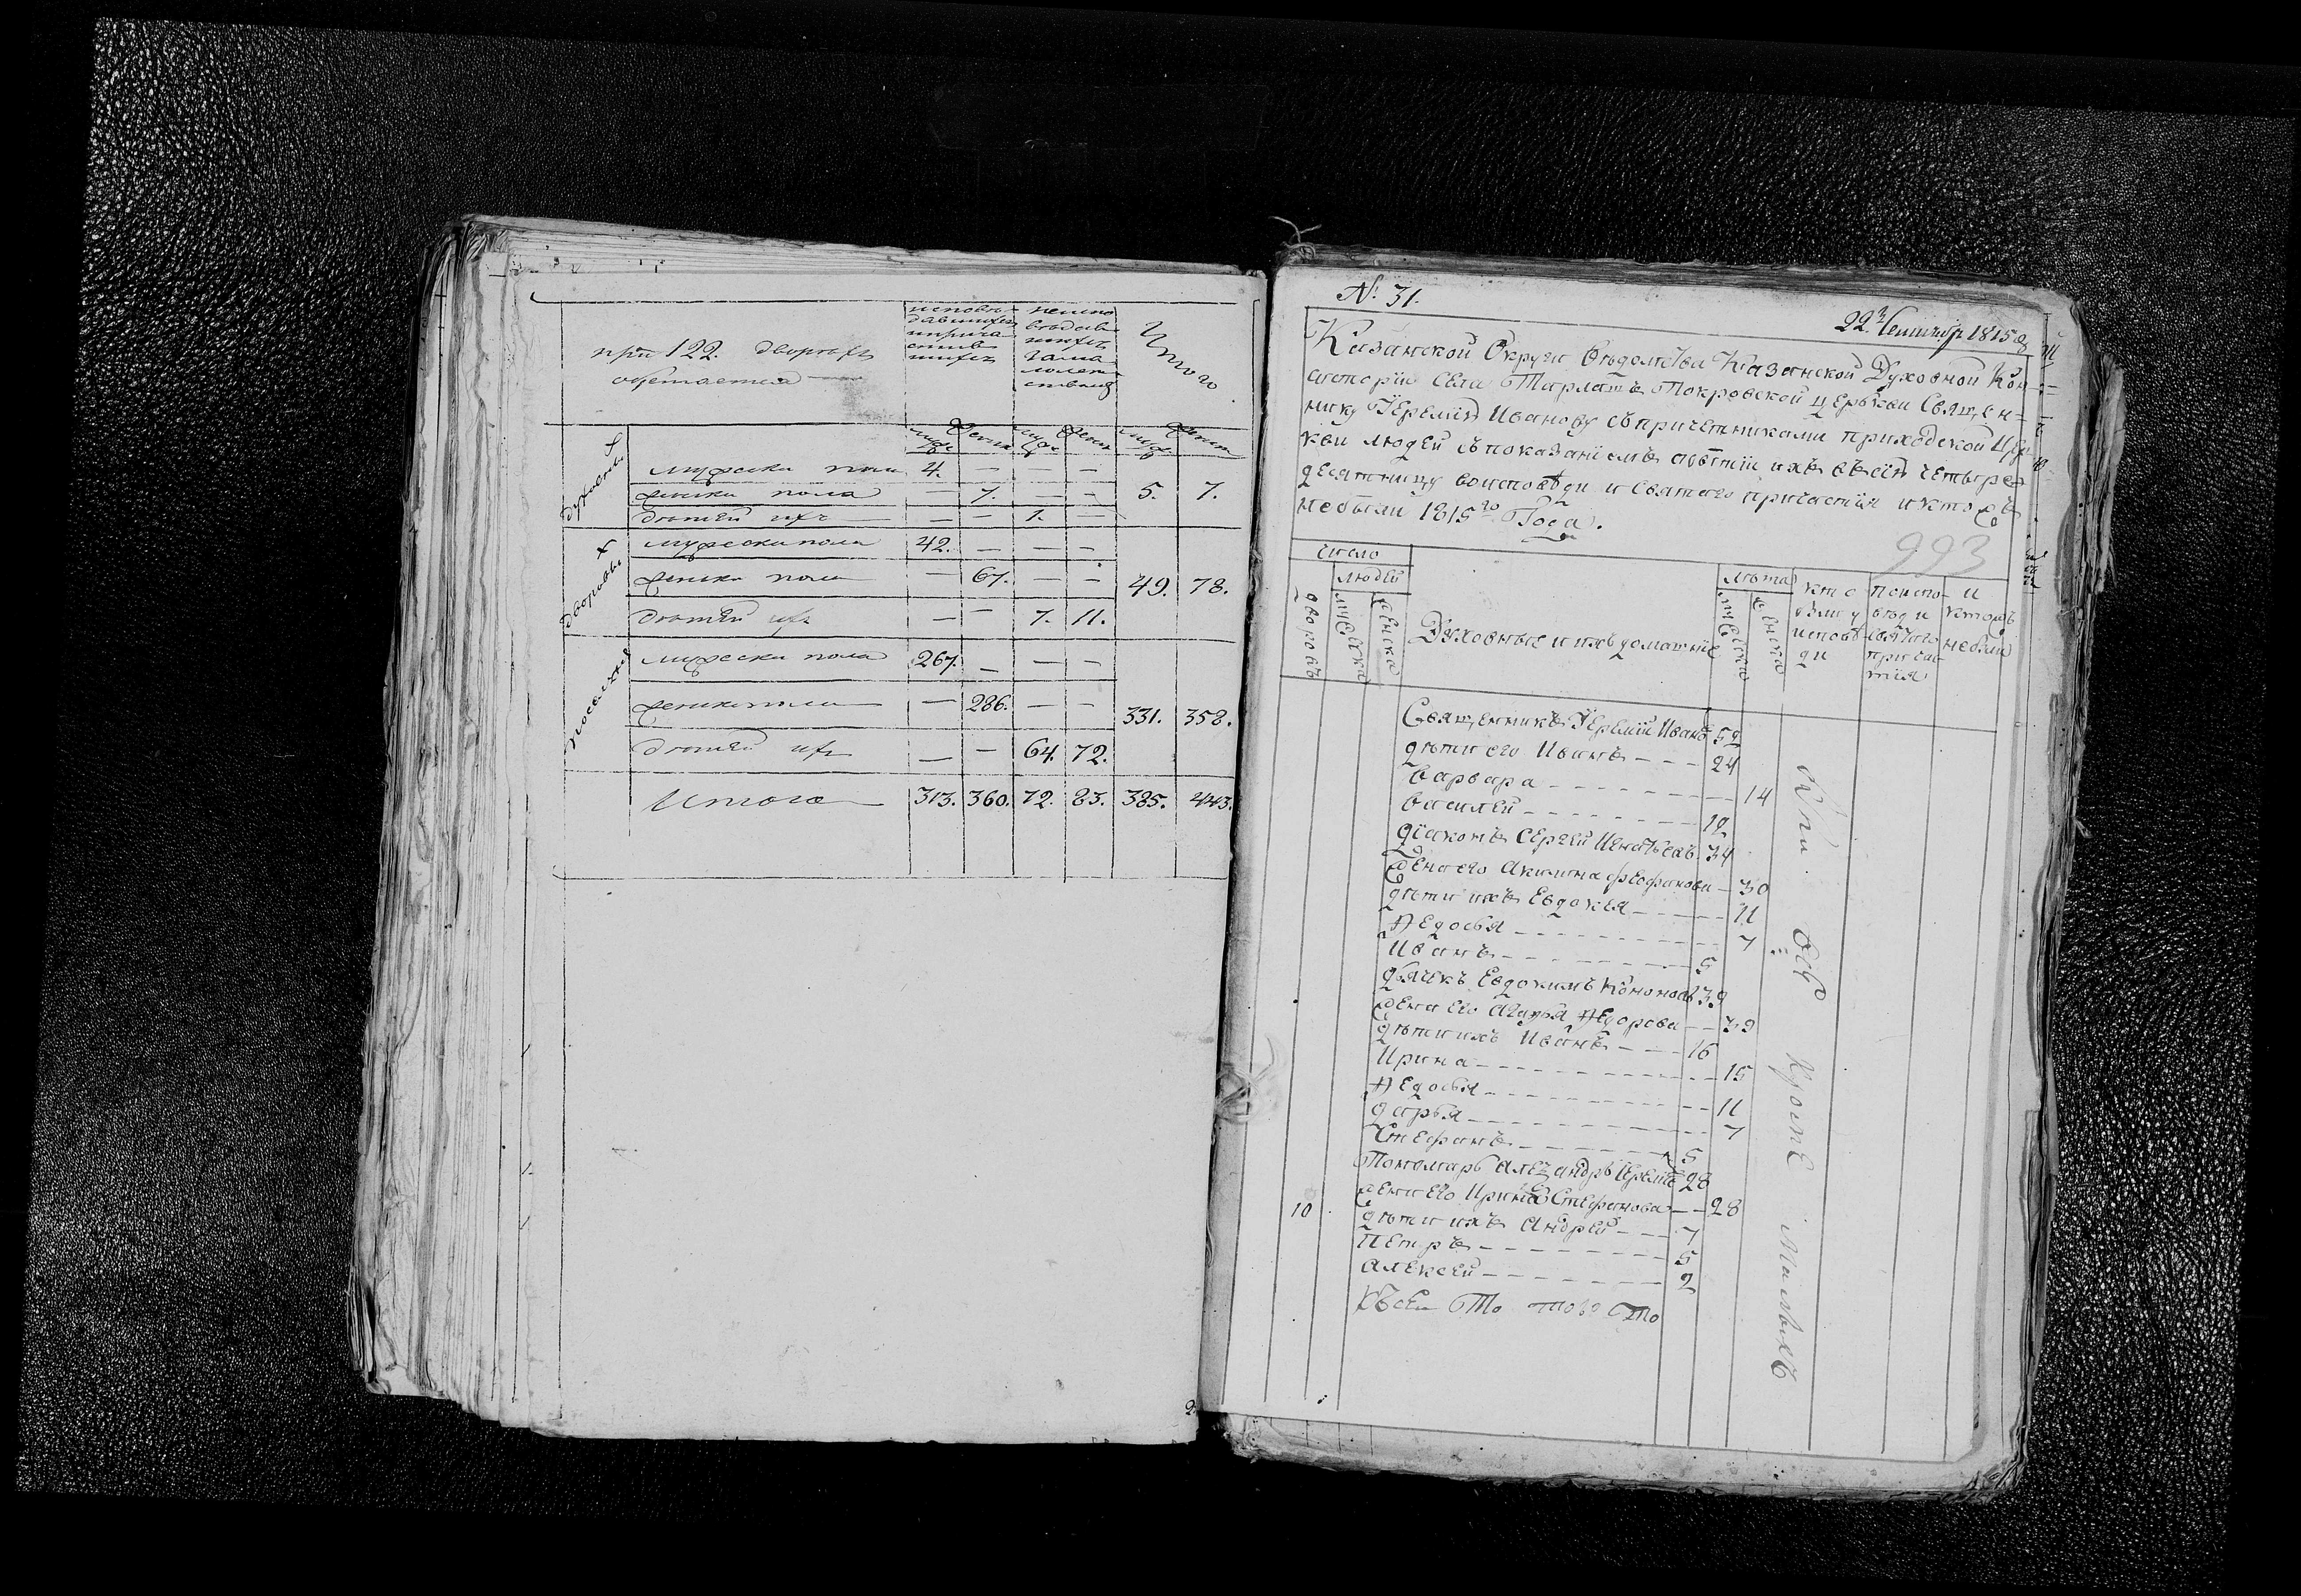 при 122. дворахъ
обретается
исповѣ-
давшихся
и прича
стив
шихся
неиспо
вѣдав
шихся
за ма
лолет
ствомъ
Итого
муж женс муж женс муж женск
духовны
мужеска пола 4. — — —
женска пола — 7. — — 5. 7.
дѣтей ихъ — — 1. —
дворовы
мужеска пола 42. — — —
женска пола — 67. — — 49. 78.
дѣтей ихъ — — 7. 11.
поселяне
мужеска пола 267. — — —
женска пола — 286. — — 331. 358.
дѣтей ихъ — — 64. 72.
Итого 313. 360. 72. 83. 385. 443.
№ 31.
22 Сентября 1815
Казанской Округи Вѣдомства Казанской Духовной Кон-
систории Села Тарлашъ Покровской церькви Священ-
нику Иеремии Иванову съ причетниками приходской церь
кви людей съ показаниемъ о бытии ихъ въ сию четыре
десятницу во исповѣди и Святаго причастия и кто въ
небыли 1815го Года.
993
число
людей
дворовъ
мужеска
женска
Духовные и ихъ домашние
лѣта
мужеска
женска
кто
былъ у
исповѣ
ди
по испо-
вѣди и
Святаго
причас
тия
и
кто
небыли
Священникъ Иеремий Ивановъ 52
дѣти его Иванъ — — — 24
Варвара — — — 14
Василей — — — 12
диаконъ Сергей Игнатьевъ 34
жена его Акилина Феофанова — 30
дѣти ихъ Евдокея — — — 11
Федосья — — — 7
Иванъ — — — 5
дьячекъ Евдокимъ Кононовъ 39
жена его Агафья Федорова — — 39
дѣти ихъ Иванъ — — — 16
Ирина — — — 15
Федосья — — — 11
дарья — — — 7
Стефанъ — — — 5
Пономарь Александръ Иеремие 28
жена его Ирина Стефанова — — 28
10
дѣти ихъ Андрей — — 7
Петръ — — — 5
Алексей — — — 2
Кроме Малыхъ